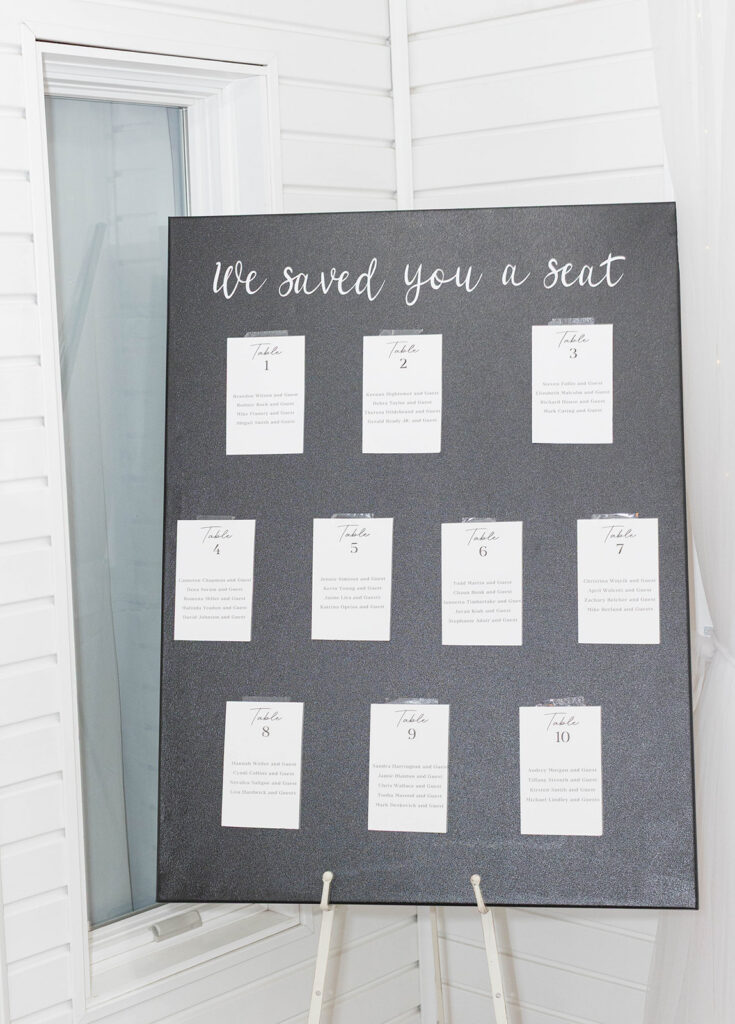 We saved you a seat
Table
1
Brandon Wilson and Guest
and Guest
Mike and Guest
Abigail Smith and Guest
Table
2
Keenan Hightower and Guest
Debra Taylor and Guest
Theresa Hildebrand and Guest
Gerald Ready JR. and Guest
Table
3
Steven and Guest
Elizabeth Malcolm and Guest
Richard House and Guest
Mark and Guest
Table
4
Cameron Chapman and Guest
and Guest
Miller and Guest
and Guest
David Johnson and Guest
Table
5
Jessie Johnson and Guest
Kevin Young and Guest
Jaime and Guest
Katrina and Guest
Table
6
Todd Martin and Guest
and Guest
Timberlake and Guest
and Guest
Stephanie Adair and Guest
Table
7
Christina and Guest
April and Guest
Zachary Belcher and Guest
Mike Borland and Guests
Table
8
Hannah and Guest
Cyndi Collins and Guest
and Guest
Lisa Hardwick and Guest
Table
9
Sandra Harrington and Guest
Jamie and Guest
Chris Wallace and Guest
and Guest
Mark and Guest
Table
10
Audrey Morgan and Guest
Tiffany and Guest
Kirsten Smith and Guest
Michael Lindley and Guests